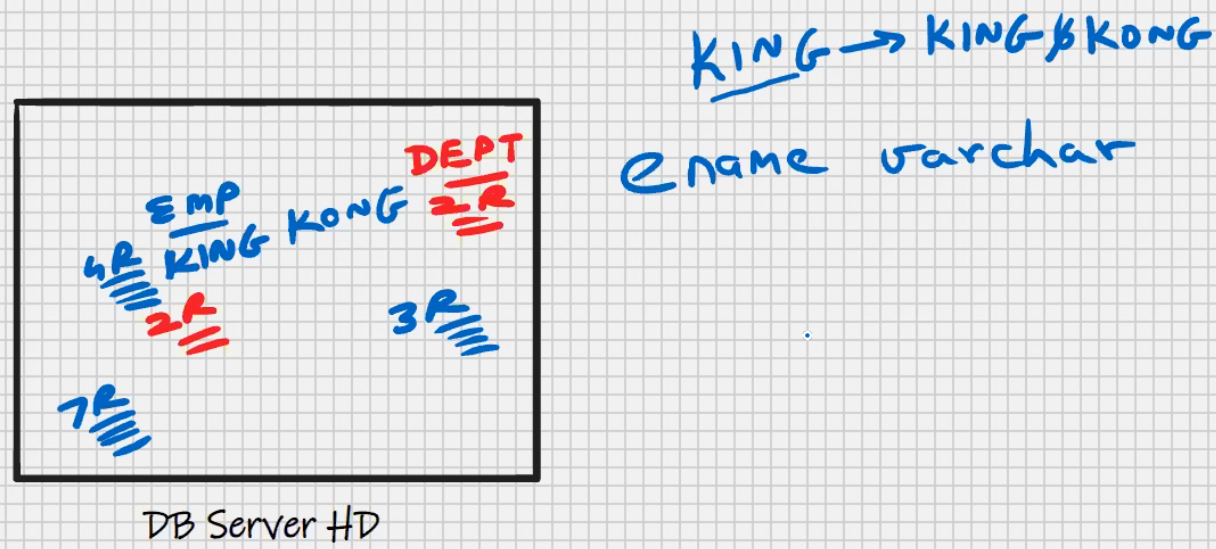 KING → KING␢KONG
ename varchar
DEPT
2R
EMP
KING KONG
4R
2R
3R
7R
DB Server HD